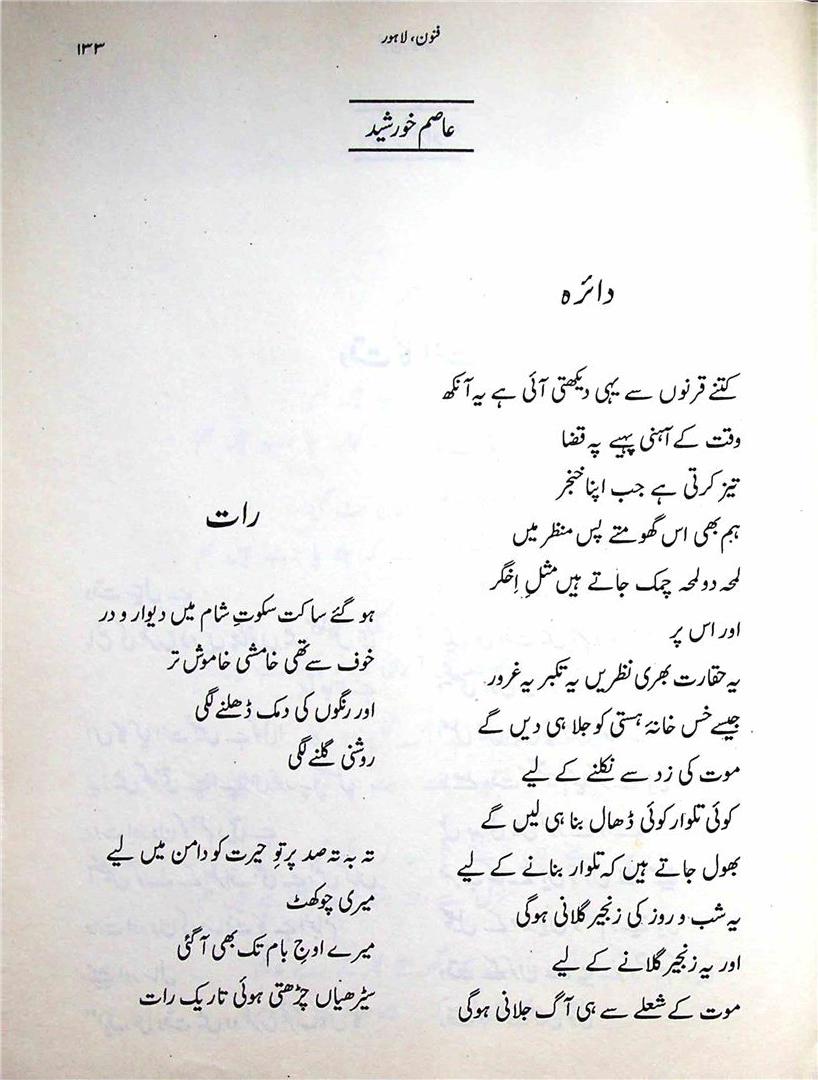 ۱۳۳
فنون، لاہور
عاصم خورشید
دائرہ
کتنے قرنوں سے یہی دیکھتی آئی ہے یہ آنکھ
وقت کے آہنی پہیے پہ قضا
تیز کرتی ہے جب اپنا خنجر
ہم بھی اس گھومتے پس منظر میں
لمحہ دو لمحہ چمک جاتے ہیں مثلِ اخگر
اور اس پر
یہ حقارت بھری نظریں یہ تکبر یہ غرور
جیسے خس خانۂ ہستی کو جلا ہی دیں گے
موت کی زد سے نکلنے کے لیے
کوئی تلوار کوئی ڈھال بنا ہی لیں گے
بھول جاتے ہیں کہ تلوار بنانے کے لیے
یہ شب و روز کی زنجیر گلانی ہوگی
اور یہ زنجیر گلانے کے لیے
موت کے شعلے سے ہی آگ جلانی ہوگی
رات
ہو گئے ساکت سکوتِ شام میں دیوار و در
خوف سے تھی خامشی خاموش تر
اور رنگوں کی دمک ڈھلنے لگی
روشنی گلنے لگی
تہ بہ تہ صد پرتوِ حیرت کو دامن میں لیے
میری چوکھٹ
میرے اوجِ بام تک بھی آ گئی
سیڑھیاں چڑھتی ہوئی تاریک رات